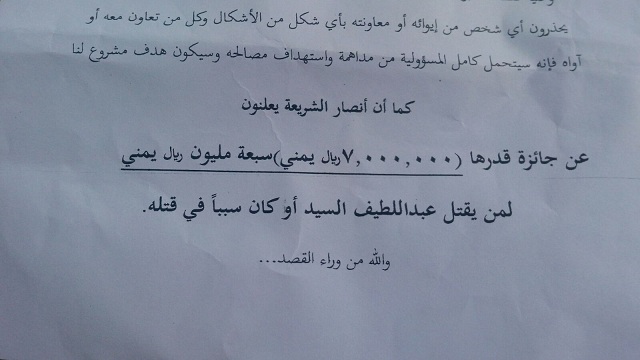 يحذرون أي شخص من إيوائه أو معاونته بأي شكل من الأشكال وكل من تعاون معه أو
آواه فإنه سيتحمل كامل المسؤولية من مداهمة واستهداف مصالحه وسيكون هدف مشروع لنا
كما أن أنصار الشريعة يعلنون
عن جائزة قدرها (٧,٠٠٠,٠٠٠ريال يمني)سبعة مليون ريال يمني
لمن يقتل عبداللطيف السيد أو كان سبباً في قتله.
والله من وراء القصد...